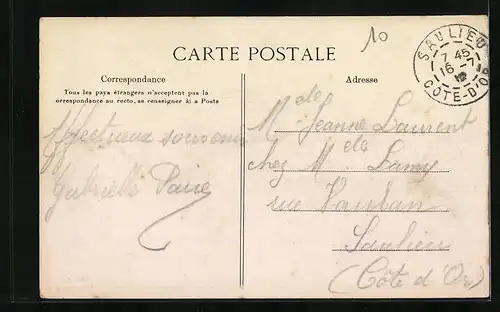 10
SAULIEU
7 45
16 - 7
CÔTE-D'O
CARTE POSTALE
Correspondance
Tous les pays étrangers n'acceptent pas la
orrespondance au recto, se renseigner ki a Poste
Adresse
Mdelle Jeanne Laurent
chez Mdelle Lamy
rue Vauban
Saulieu
(Côte d'Or)
Affectueux souvenir
Gabrielle